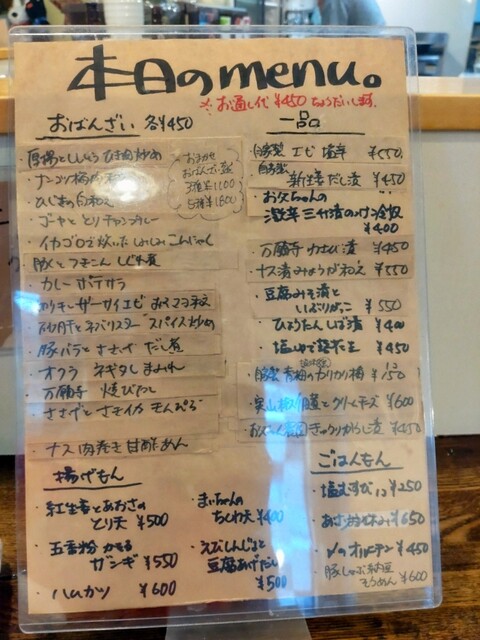 本日のmenu。
※お通し代 ¥450 ちょうだいします。
おばんざい 各¥450
・厚揚とししとう ひき肉炒め
・ひじきの白和え
・ゴーヤととりチャンカレー
・イカゴロで炊いた しみしみこんにゃく
・カレーポテサラ
・砂肝とネバリスター スパイス炒め
・豚バラとささげ だし煮
・オクラ ネギタレまみれ
・万願寺 焼びたし
・ささげとさきイカ きんぴら
・ナス肉巻き 甘酢あん
おまかせ
おばんざい盛
3種盛1100
5種盛1800
一品
・自家製 エビ塩辛 ¥550
・自家製 新生姜だし漬 ¥450
・お父ちゃんの
激辛三升漬のっけ冷奴
¥400
・万願寺 わさび漬 ¥450
・ナス漬みょうが和え ¥550
・豆腐みそ漬と
いぶりがっこ ¥550
・ひょうたんしば漬 ¥400
・塩ゆで落花生 ¥450
・自家製 青梅のカリカリ梅 1コ ¥150
・実山椒 とクリームチーズ ¥600
きゅうりからし漬 ¥450
揚げもん
・紅生姜とあおさの
とり天 ¥500
・五香粉かおる
ザンギ ¥550
・ハムカツ ¥600
・まいちゃんの
ちくわ天 ¥400
・えびしんじょと
豆腐あげだし
¥500
ごはんもん
・塩むすび 1コ ¥250
¥650
・〆のオルデン ¥450
・豚しゃぶ納豆
そうめん ¥600